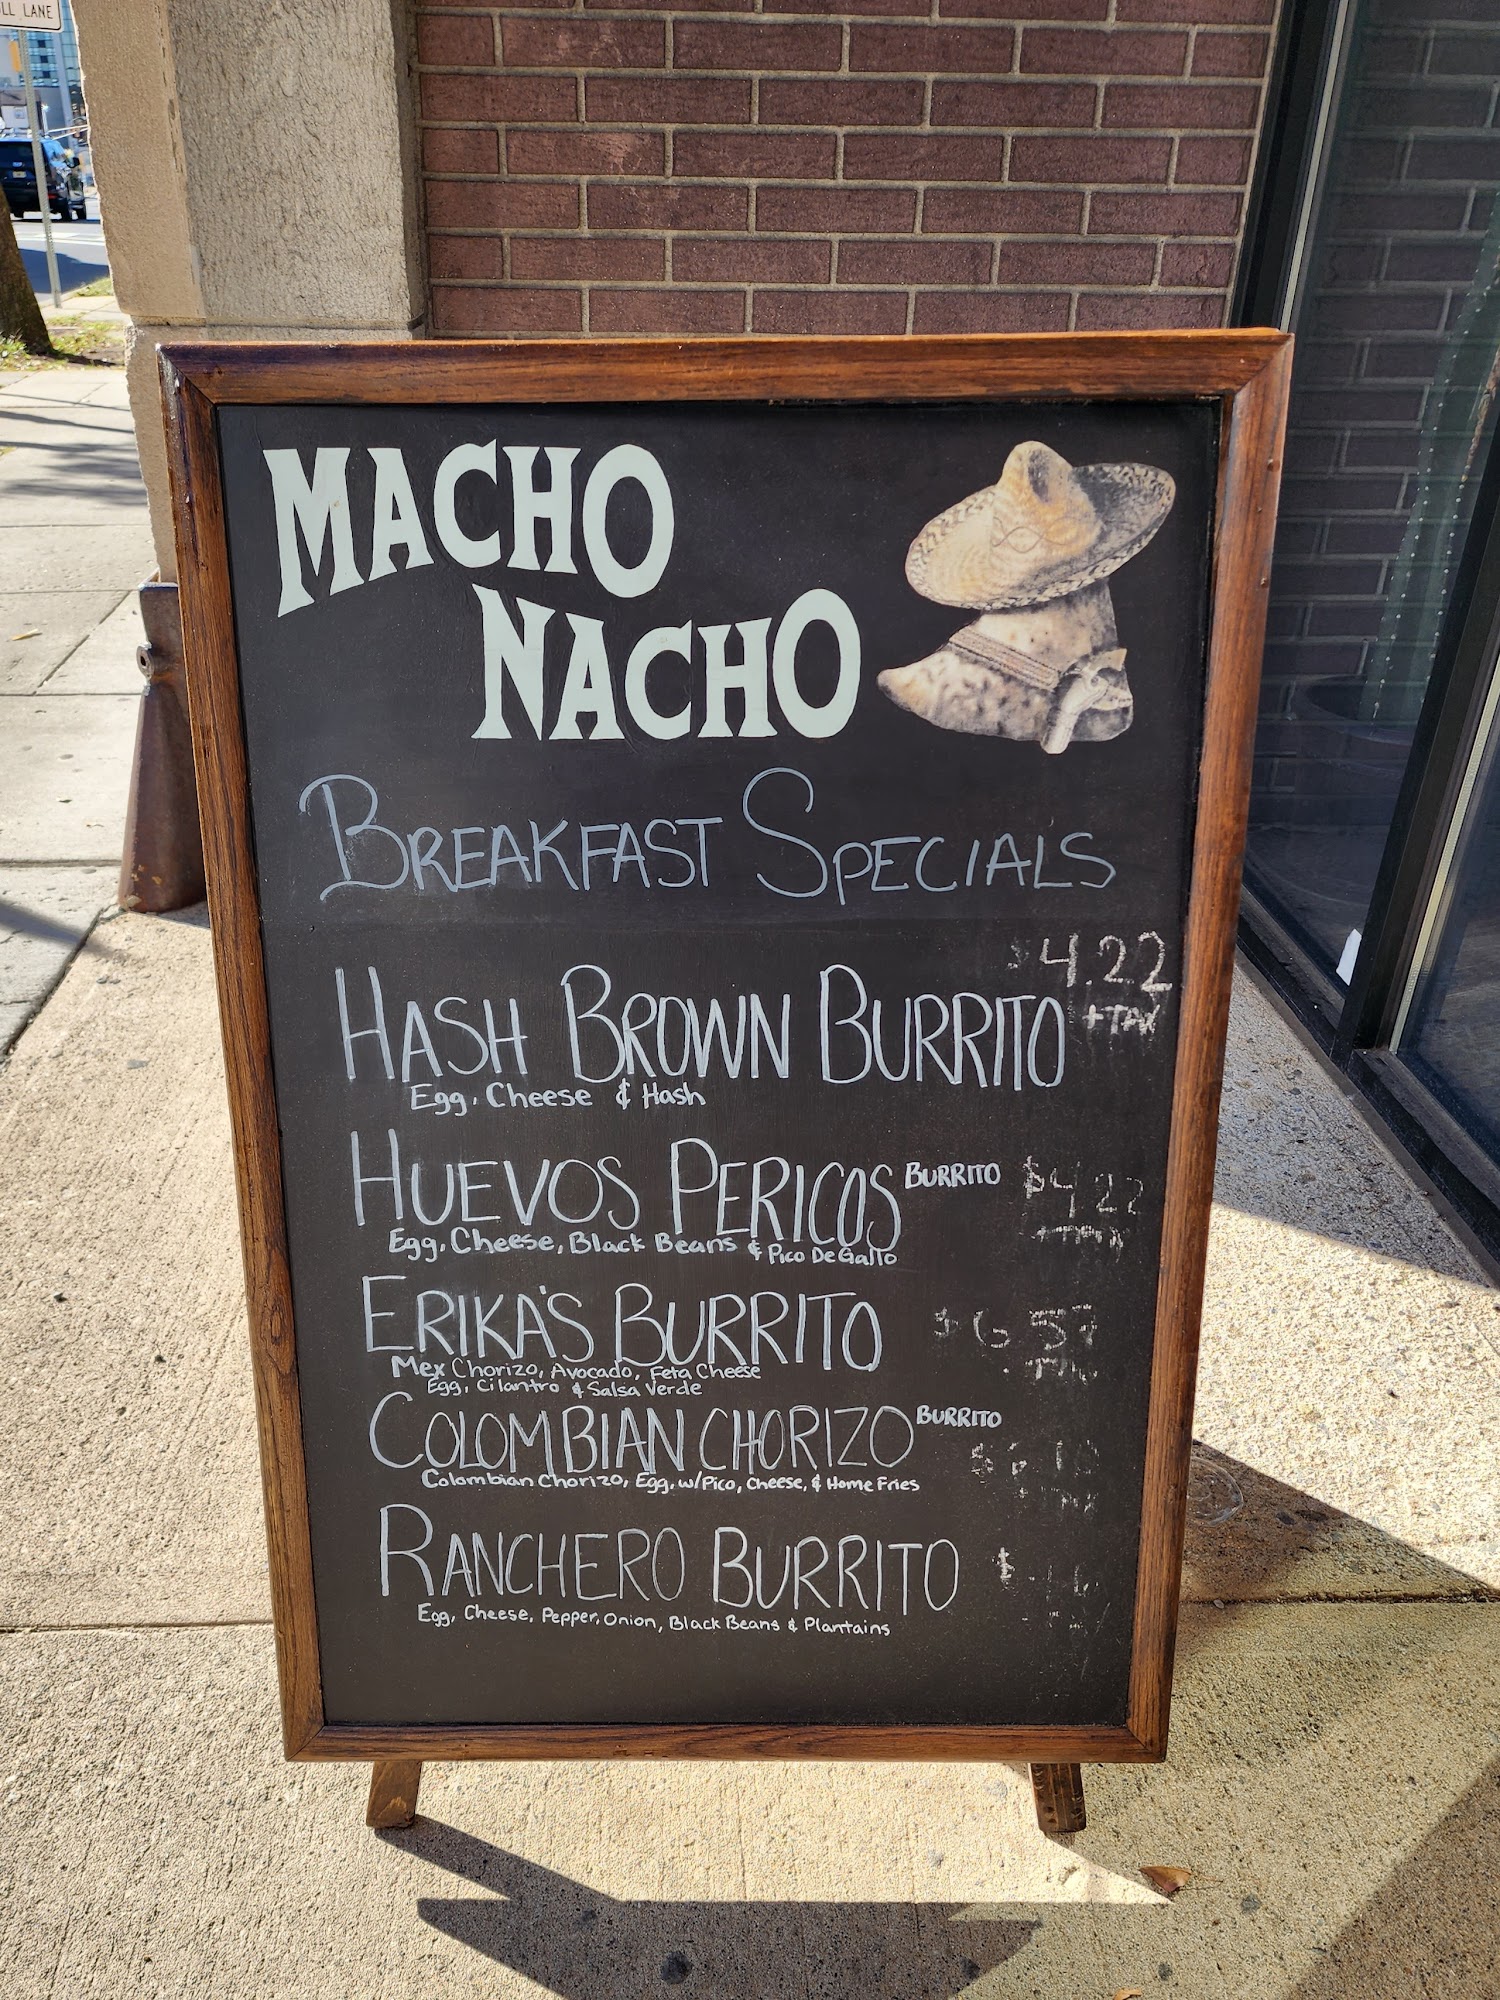 LL LANE
MACHO
NACHO
BREAKFAST SPECIALS
$4.22
+TAX
HASH BROWN BURRITO
Egg, Cheese & Hash
HUEVOS PERICOS BURRITO $4.22
Egg, Cheese, Black Beans & Pico De Gallo
ERIKA'S BURRITO $6.57
Mex Chorizo, Avocado, Feta Cheese
Egg, Cilantro & Salsa Verde
COLOMBIAN CHORIZO BURRITO
Colombian Chorizo, Egg, w/Pico, Cheese, & Home Fries
+TAX
RANCHERO BURRITO
Egg, Cheese, Pepper, Onion, Black Beans & Plantains